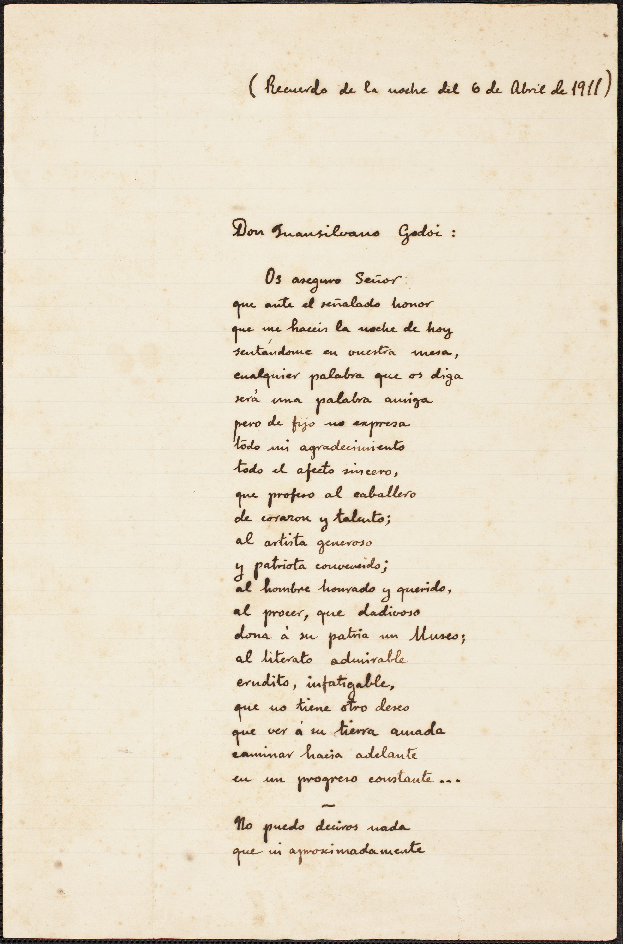 (Recuerdo de la noche del 6 de Abril de 1911)
Don Juansilvano Godoi :
Os aseguro Señor
que ante el señalado honor
que me haceis la noche de hoy
sentándome en vuestra mesa,
cualquier palabra que os diga
será una palabra amiga
pero de fijo no expresa
todo mi agradecimiento
todo el afecto sincero,
que profeso al caballero
de corazon y talento;
al artista generoso
y patriota convencido;
al hombre honrado y querido,
al procer, que dadivoso
dona á su patria un Museo;
al literato admirable
erudito, infatigable,
que no tiene otro deseo
que ver á su tierra amada
caminar hacia adelante
en un progreso constante...
No puedo deciros nada
que ni aproximadamente